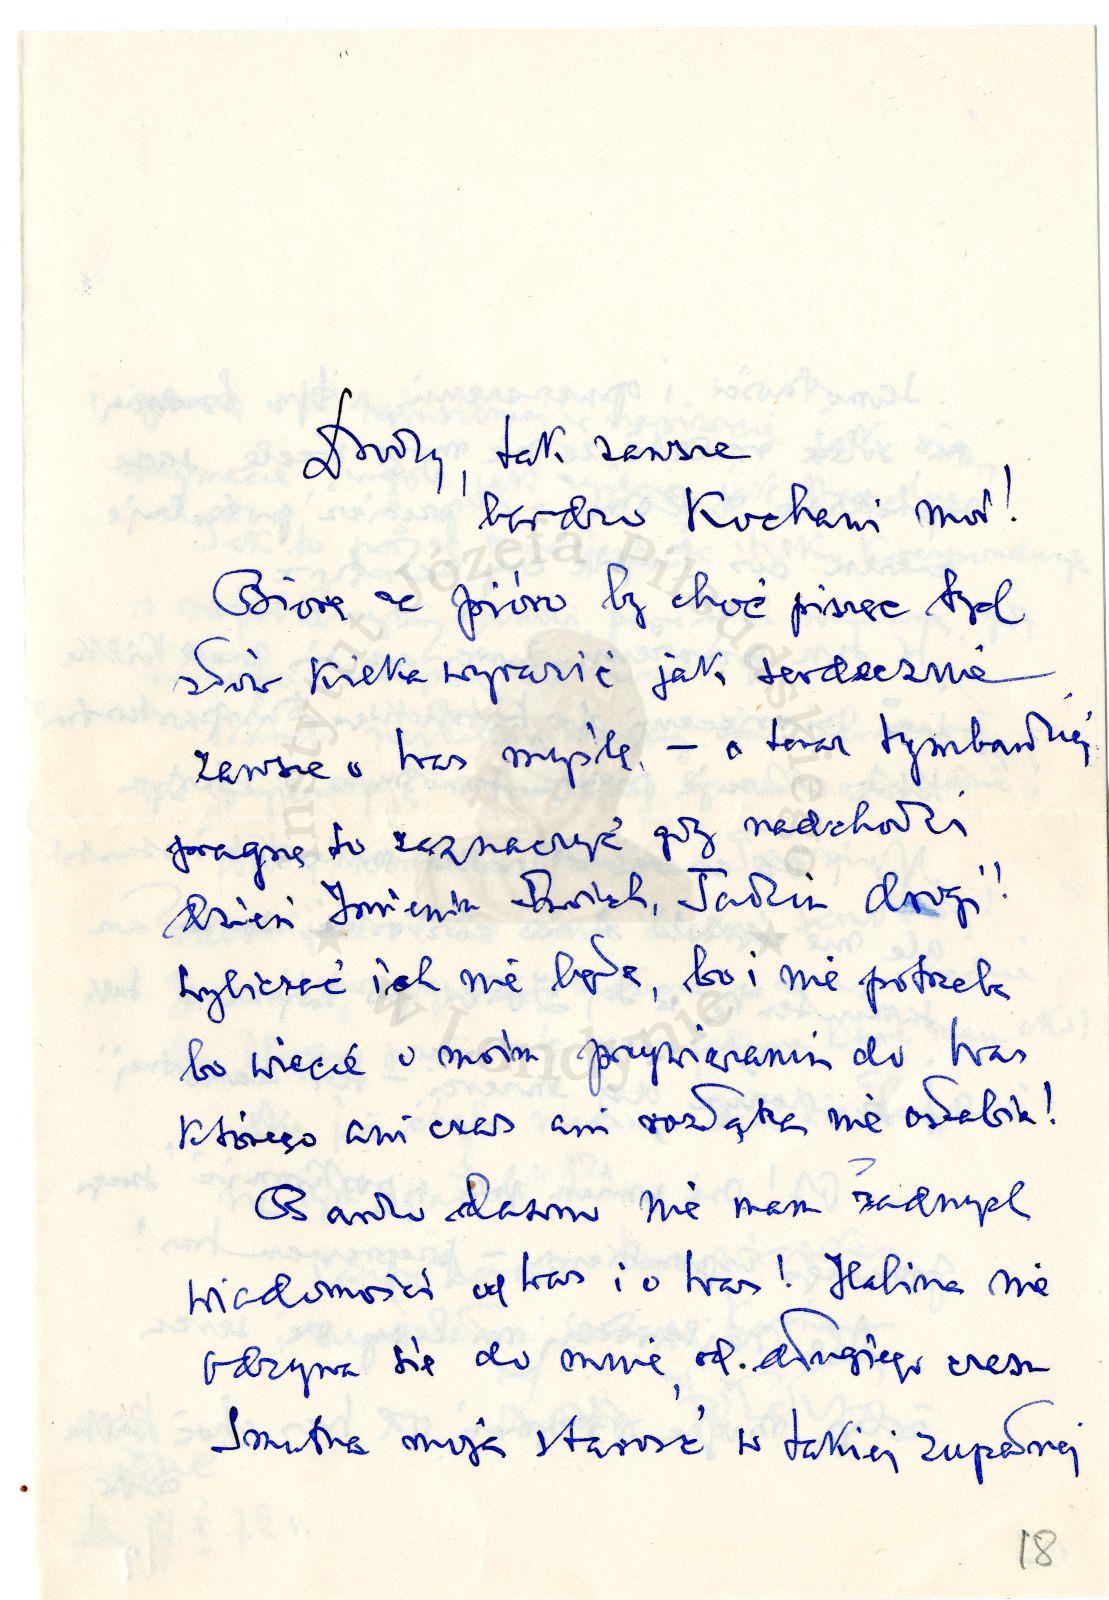 Drodzy, tak zawsze
bardzo Kochani moi!
Biorę za pióro by choć pisząc tych
słów kilka wyrazić jak serdecznie
zawsze o Was myślę, – a teraz tymbardziej
pragnę to zaznaczyć gdy nadchodzi
dzień Imienin Twoich, Tadziu drogi!
Wyliczać ich nie będę, bo i nie potrzeba
bo wiecie o moim przywiązaniu do Was
którego ani czas ani rozłąka nie osłabia!
Bardzo dawno nie mam żadnych
wiadomości od Was i o Was! Halina nie
odzywa się do mnie, od długiego czasu
Smutna moja starość w takiej zupełnej
18
Instytut Józefa Piłsudskiego
w Londynie